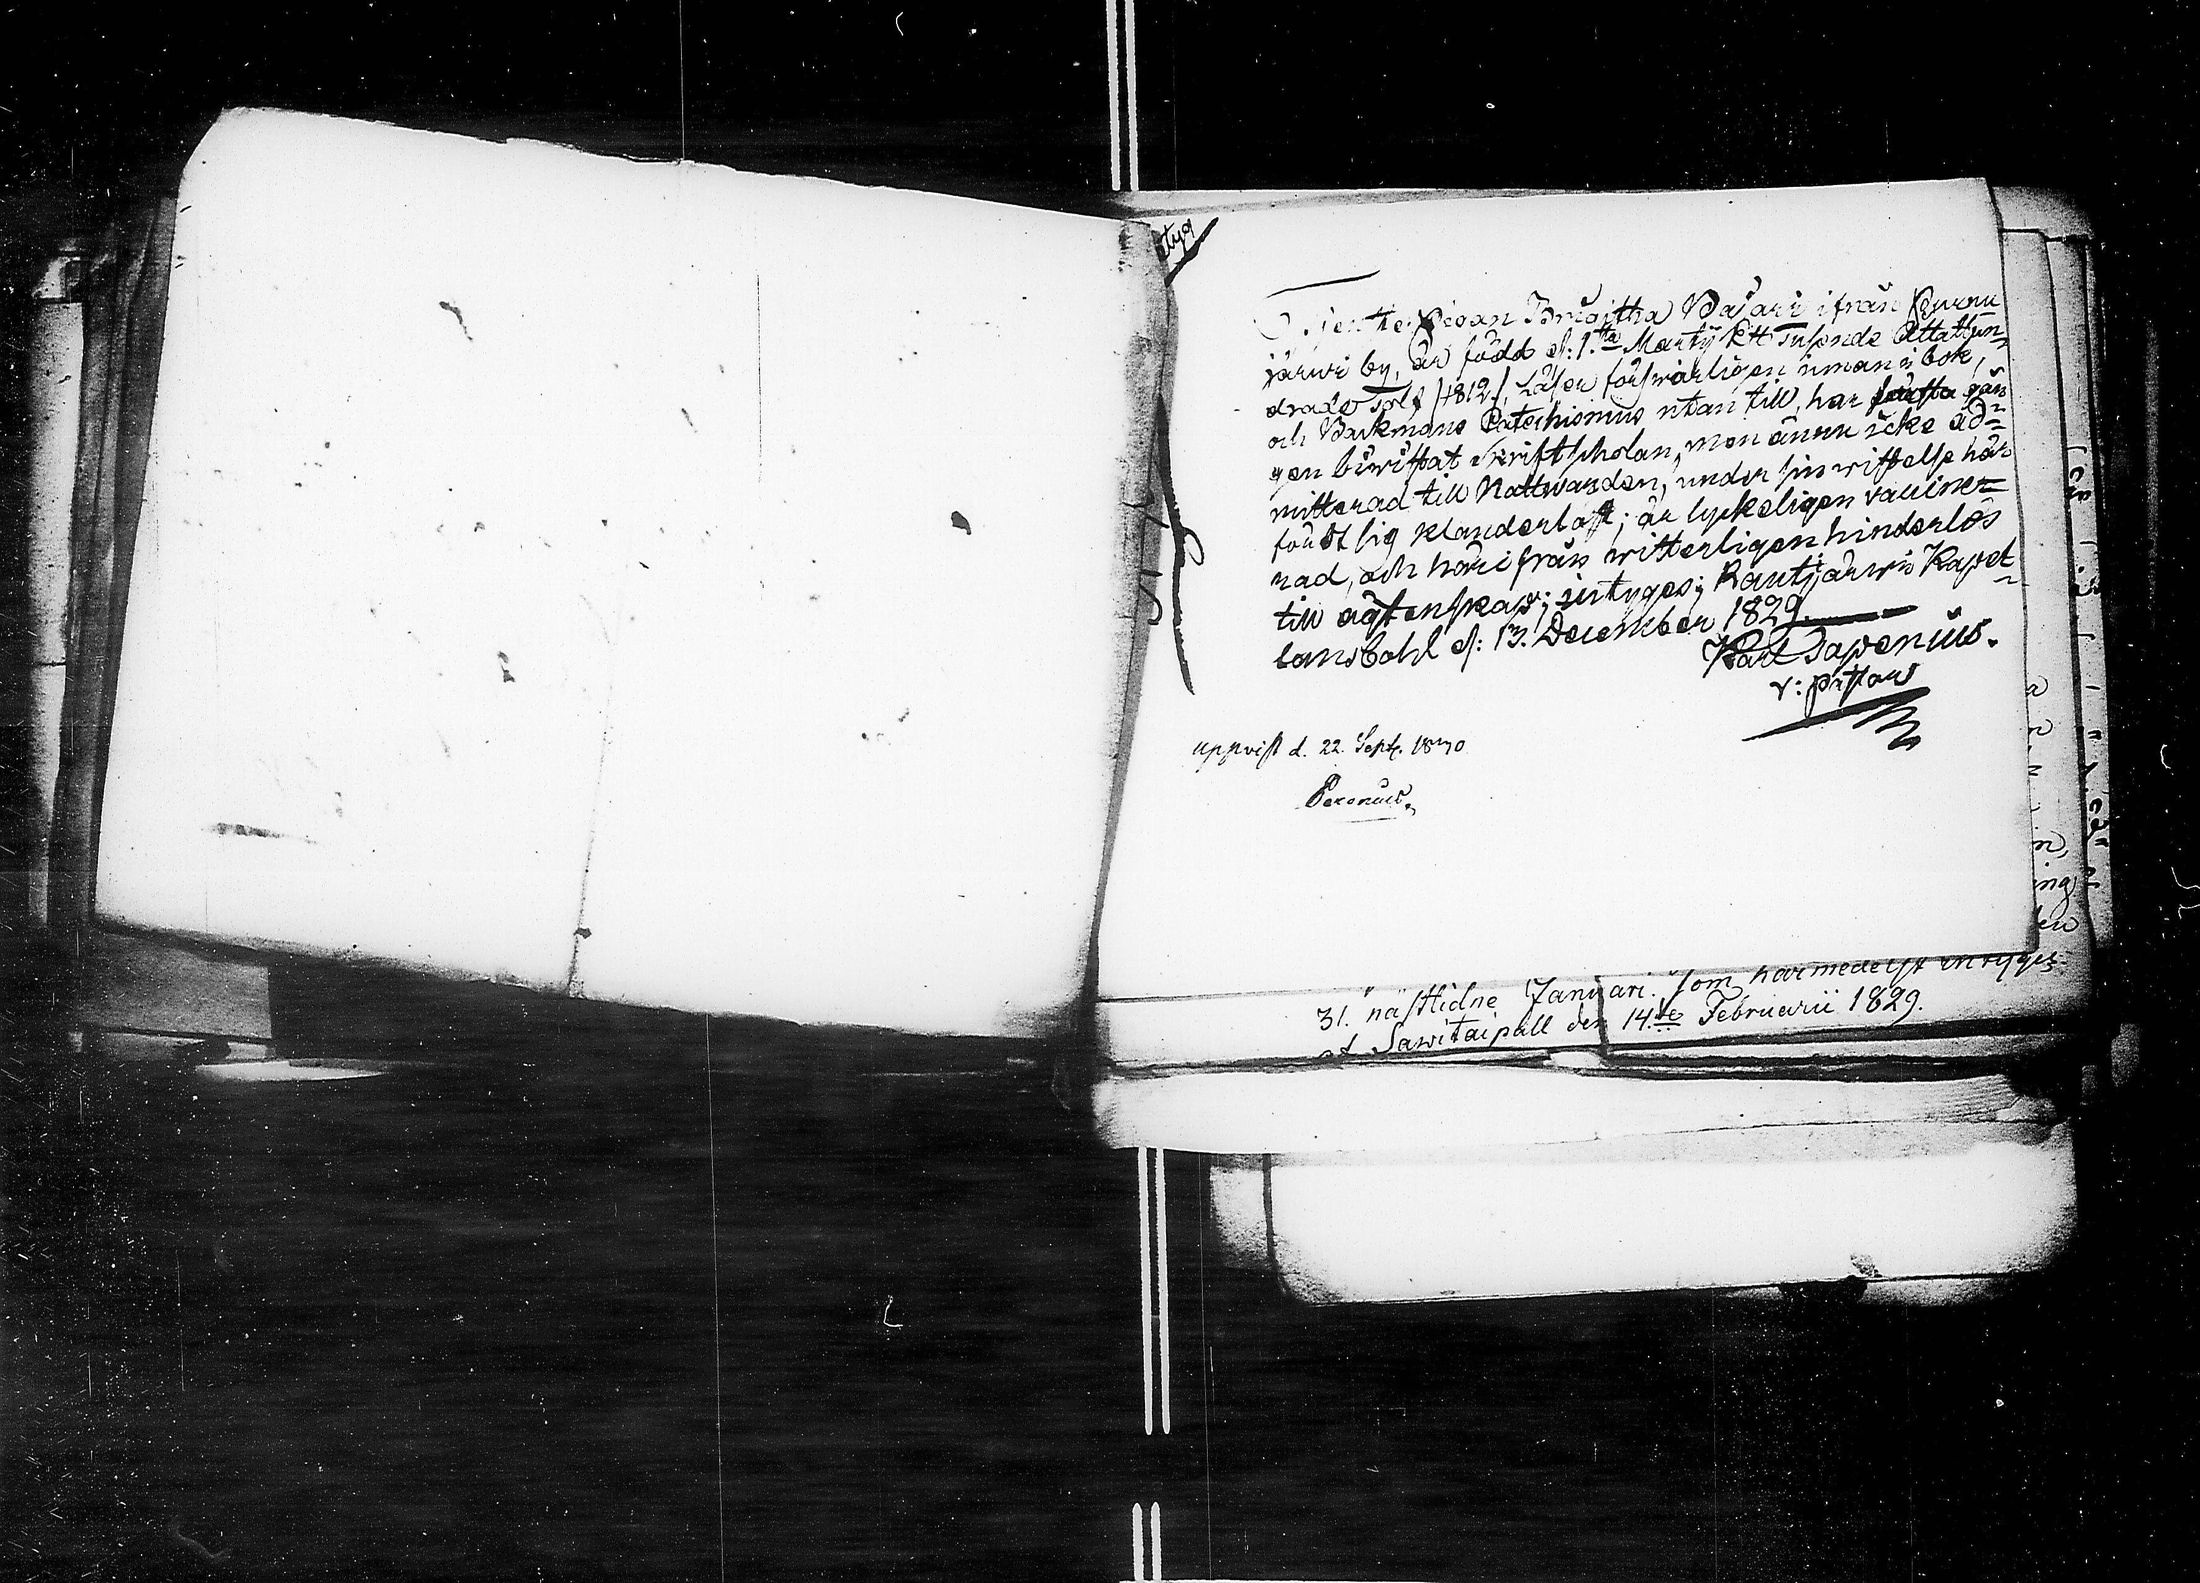 Pigan Brigitha Vasari ifrån Purnu
järwi by, är född d: 1.ta Martij Ett Tusende Åttahun-
drade Tolf /1812/, Läser förswarligen innan i bok,
och Backmans Catechismus utan till, har första gån
gen biwistat Skriftskolan, men ännu icke ad=
mitterad till Nattwarden, under sin wistelse här
fördt sig klanderlöst; är lyckeligen vaccine=
rad, och härifrån witterligen hinderlös
till ägtenskap; intyges; Rautjärwi Kapel-
lansbohl d: 13. December 1829.
Karl
v: pastor
uppvist d. 22. Sept. 1830
31. nästlidne Januari. som härmedelst intyges
at Sawitaipall den 14.de Februarii 1829.